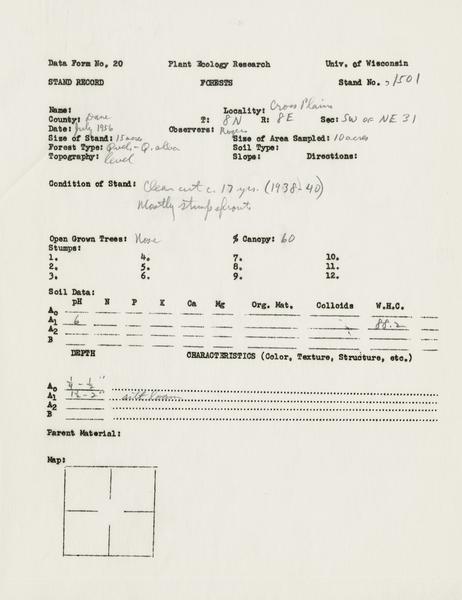 Data Form No. 20 Plant Ecology Research Univ. of Wisconsin
STAND RECORD FORESTS Stand No. 1501
Name: Locality: Cross Plains
County: Dane T: 8N R: 8E Sec: SW OF NE 31
Date: July 1956 Observers: Rogers
Size of Stand: 15 acres Size of Area Sampled: 10 acres
Forest Type: - Q. alba Soil Type:
Topography: level Slope: Directions:
Condition of Stand: Clear cut c. 17 yrs. (1938-40)
Mostly stump sprouts
Open Grown Trees: None % Canopy: 60
Stumps:
1. 4. 7. 10.
2. 5. 8. 11.
3. 6. 9. 12.
Soil Data:
pH N P K Ca Mg Org. Mat. Colloids W.H.C.
A0
A1 6 88.2
A2
B
DEPTH CHARACTERISTICS (Color, Texture, Structure, etc.)
A0 1/4 - 1/2"
A1 1 1/2 - 2" silt loam
A2
B
Parent Material:
Map: